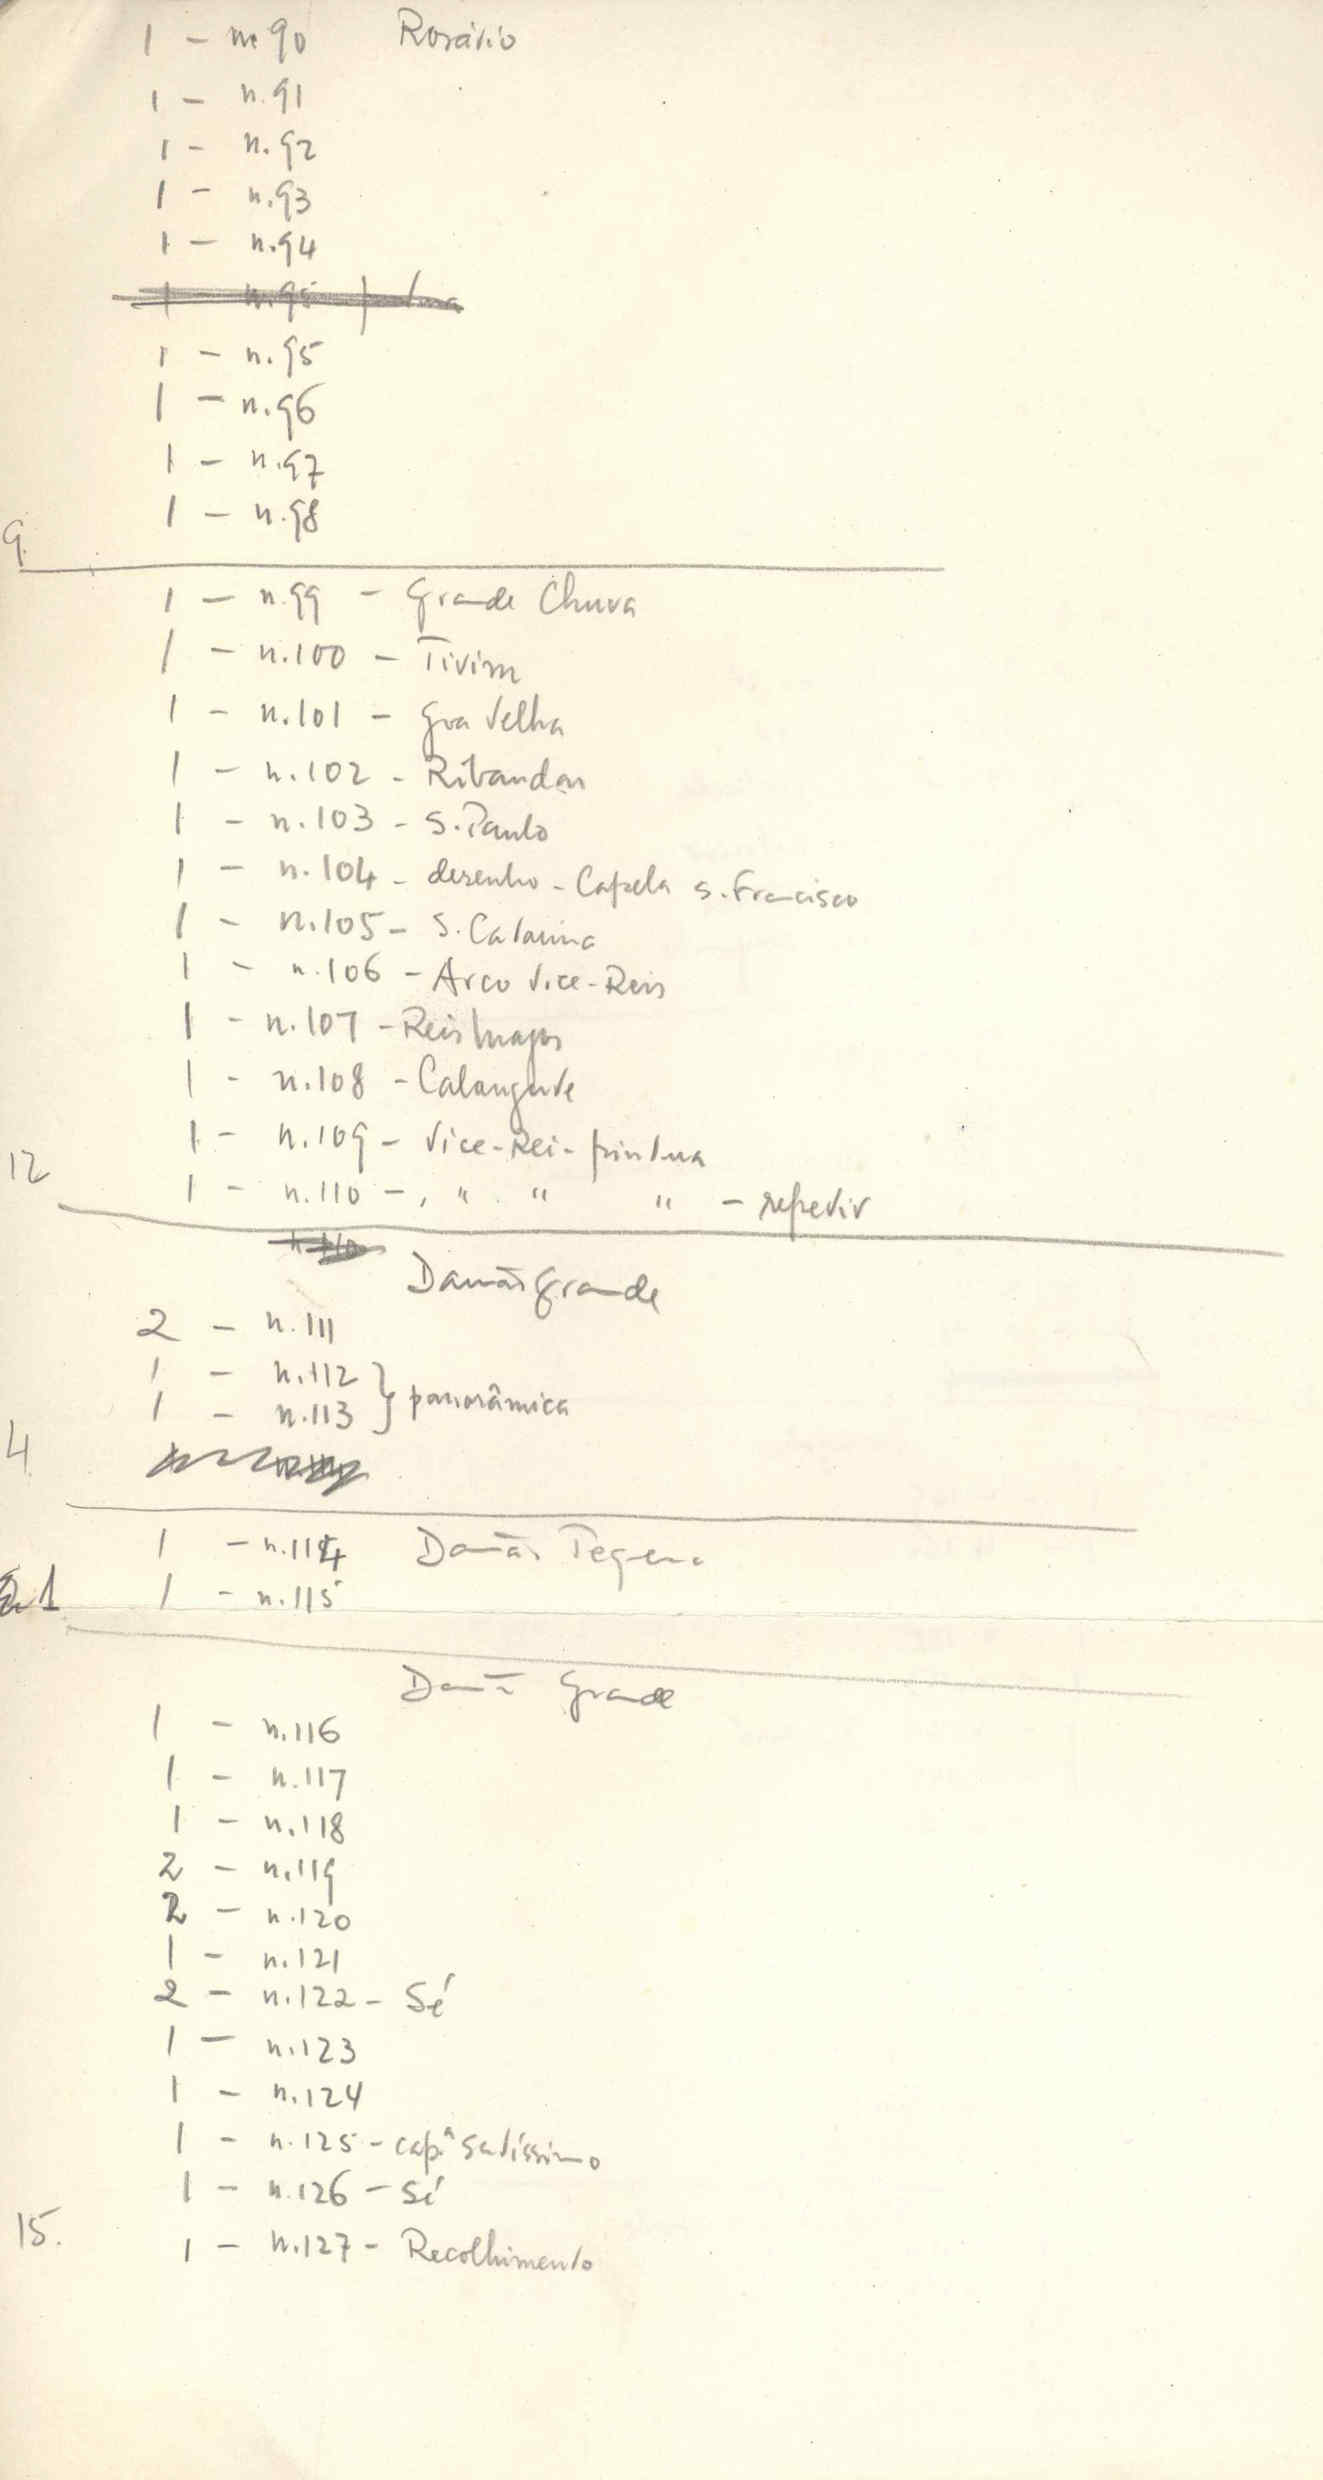 1 - nº 90 Rosário
1 - n.91
1 - n.92
1 - n.93
1 - n.94
1 - n.95
1 - n.95
1 - n.96
1 - n.97
1 - n.98
9
1 - n.99 - Grande Chuva
1 - n.100 - Tivim
1 - n.101 - Goa Velha
1 - n.102 - Ribandar
1 - n.103 - S. Paulo
1 - n.104 - desenho - Capela S. Francisco
1 - n.105 - S. Catarina
1 - n.106 - Arco Vice-Reis
1 - n.107 - Reis Magos
1 - n.108 - Calangute
1 - n.109 - Vice-Rei - pintura
12
1 - n.110 - " " " - repetir
n.110
Damão Grande
2 - n.111
1 - n.112 } panorâmica
1 - n.113
4
1 - n.114 Damão Pequeno
1
1 - n.115
Damão Grande
1 - n.116
1 - n.117
1 - n.118
2 - n.119
2 - n.120
1 - n.121
2 - n.122 - Sé
1 - n.123
1 - n.124
1 - n.125 - cap.ª Satíssimo
1 - n.126 - Sé
15.
1 - n.127 - Recolhimento